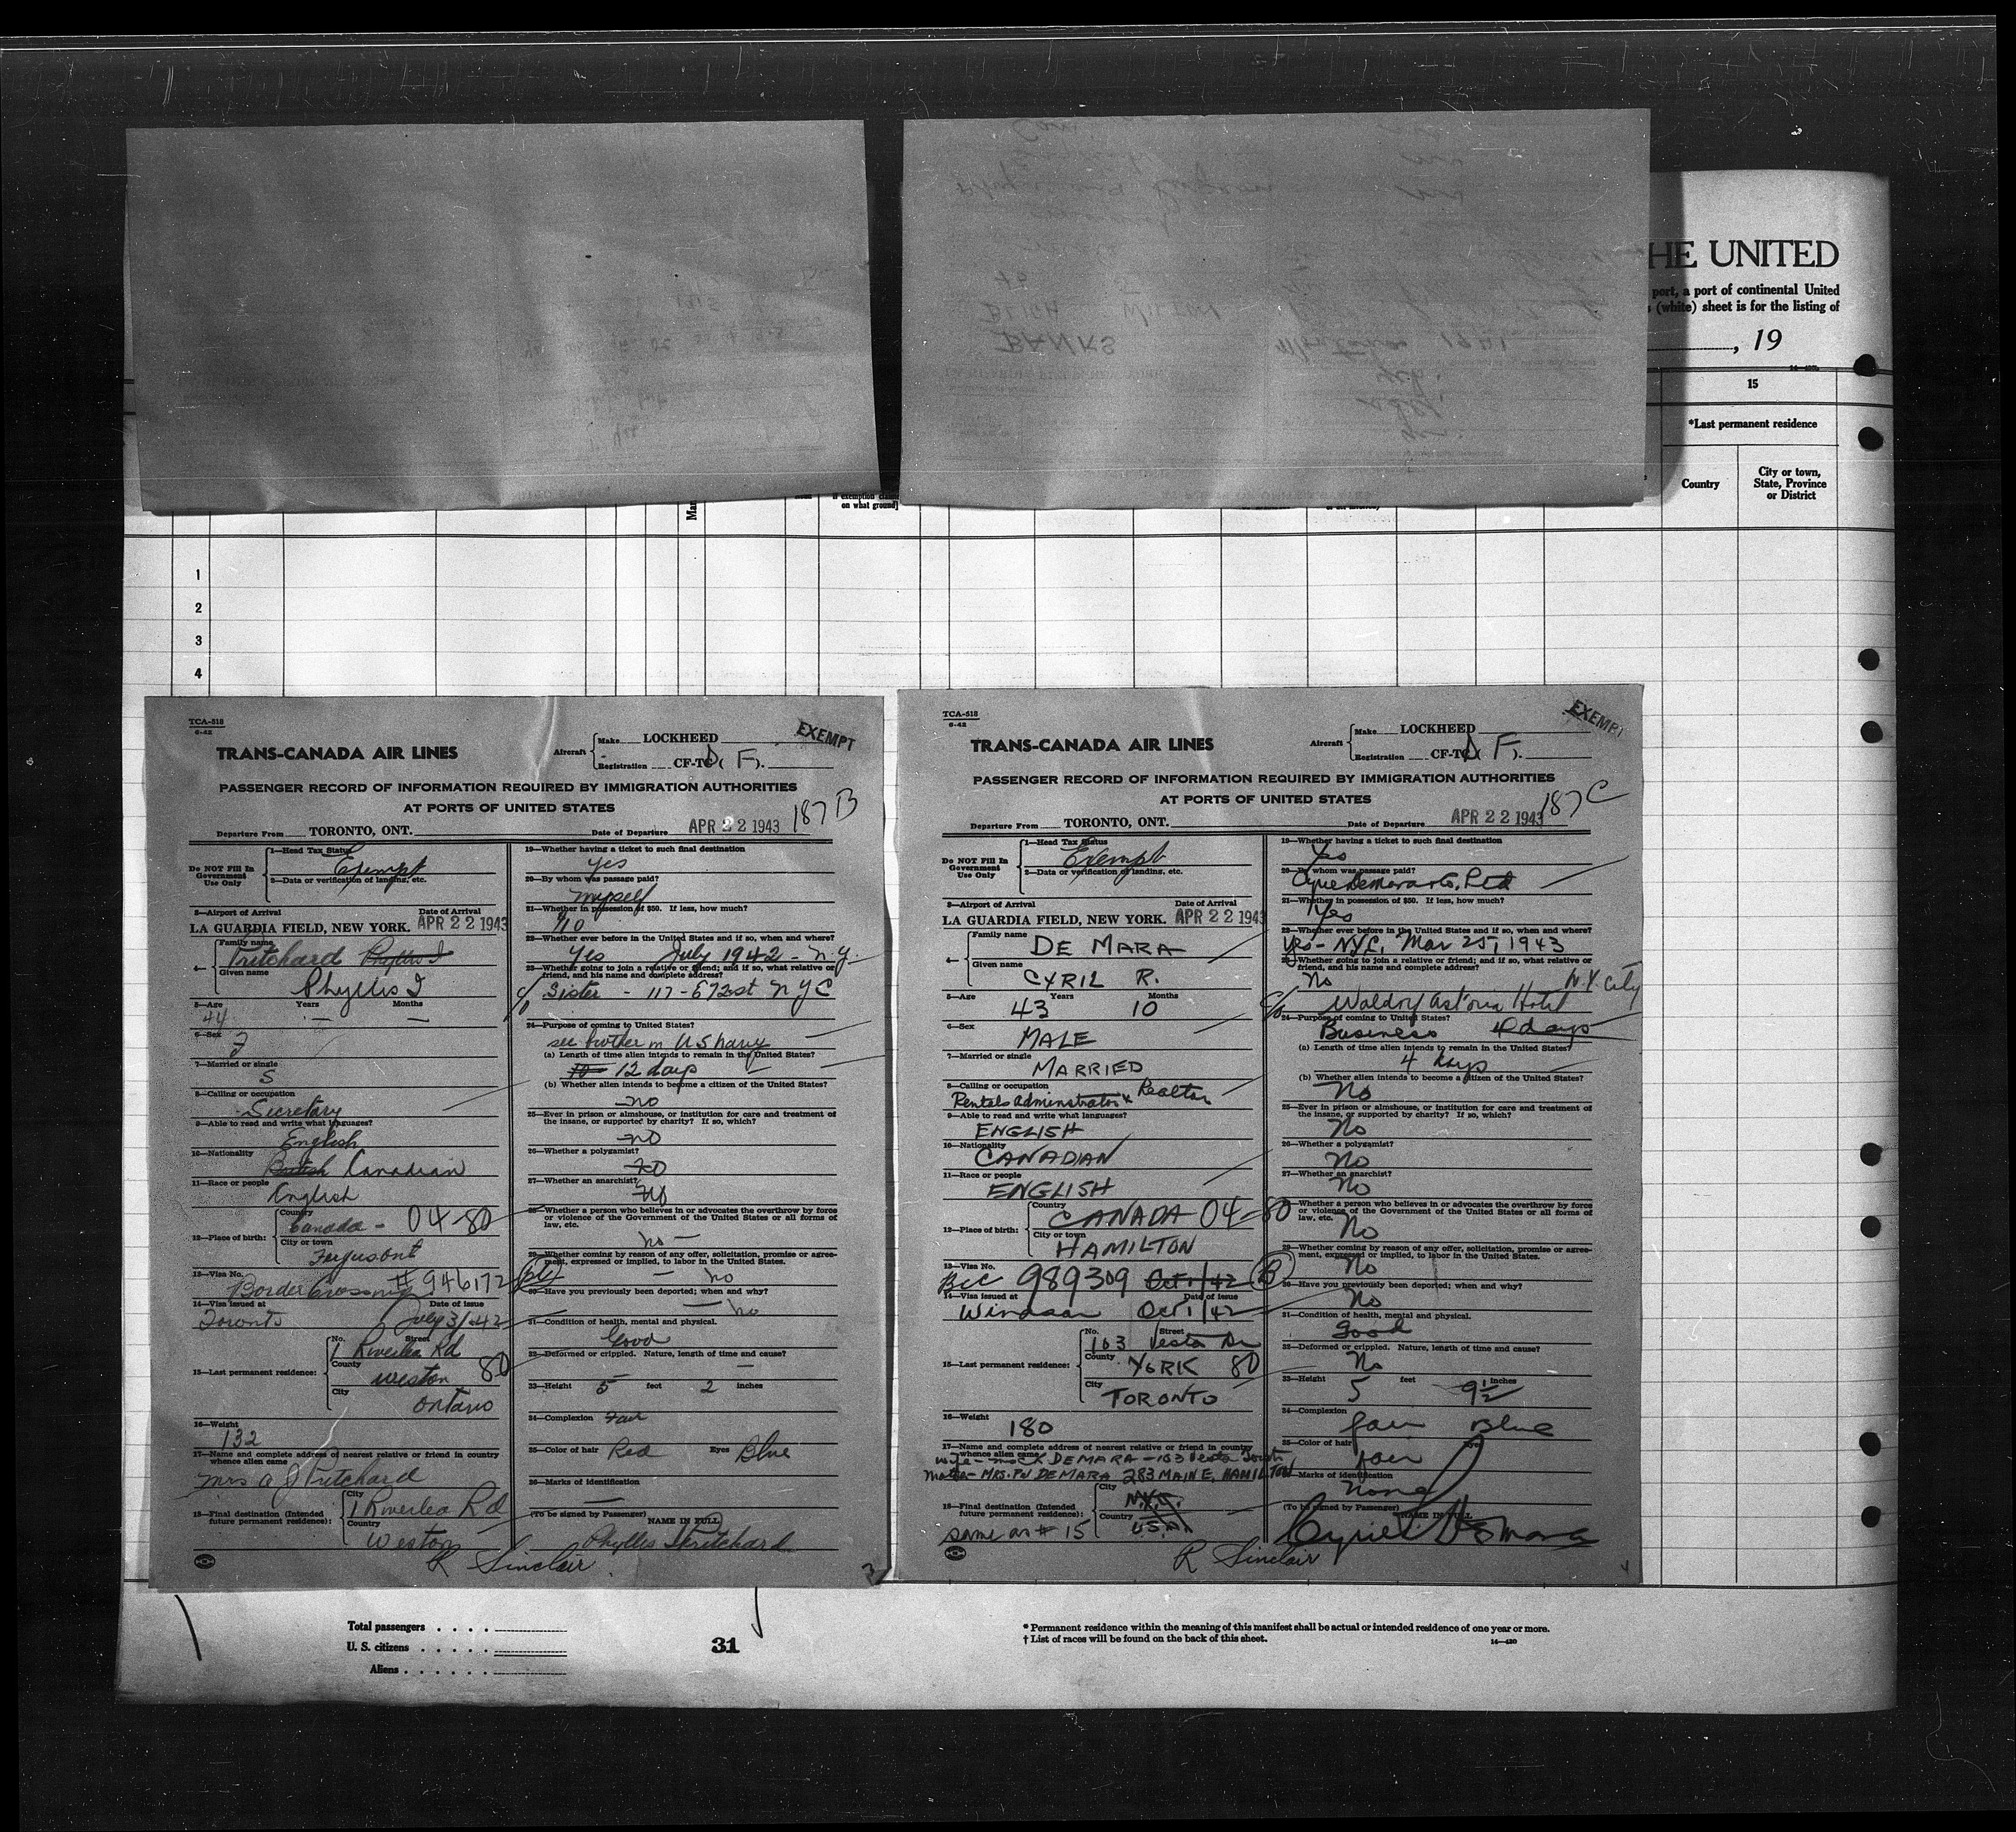 HE UNITED
port, a port of continental United
(white) sheet is for the listing of
, 19
15
*Last permanent residence
Country
City or town,
State, Province
or District
on what ground]
1
2
3
4
TCA-518
6-42
TRANS-CANADA AIR LINES
Aircraft
Make LOCKHEED
Registration CF-TC( F).
EXEMPT
PASSENGER RECORD OF INFORMATION REQUIRED BY IMMIGRATION AUTHORITIES
AT PORTS OF UNITED STATES
187 B
Departure From TORONTO, ONT. Date of Departure APR 22 1943
Do NOT Fill In
Government
Use Only
1—Head Tax Status
Exempt
2—Data or verification of landing, etc.
3—Airport of Arrival Date of Arrival
LA GUARDIA FIELD, NEW YORK. APR 22 1943
4—
Family name
Pritchard Phyllis I
Given name
Phyllis I
5—Age Years Months
44 — —
6—Sex
F
7—Married or single
S
8—Calling or occupation
Secretary
9—Able to read and write what languages?
English
10—Nationality
British Canadian
11—Race or people
English
12—Place of birth:
Country
Canada - 04-80
City or town
Fergus ont
13—Visa No.
Border Crossing #946172
14—Visa issued at Date of issue
Toronto July 31-42
15—Last permanent residence:
No. Street
1 Riverlea Rd
County
Weston 80
City
Ontario
16—Weight
132
17—Name and complete address of nearest relative or friend in country
whence alien came
Mrs A J Pritchard
18—Final destination (Intended
future permanent residence):
City
1 Riverlea Rd
Country
Weston
R Sinclair
19—Whether having a ticket to such final destination
yes
20—By whom was passage paid?
myself
21—Whether in possession of $50. If less, how much?
22—Whether ever before in the United States and if so, when and where?
Yes July 1942 - N.Y.
23—Whether going to join a relative or friend; and if so, what relative or
friend, and his name and complete address?
c/o Sister - 117-E 72 st N Y C
24—Purpose of coming to United States?
see brother in US Navy
(a) Length of time alien intends to remain in the United States?
10 12 days
(b) Whether alien intends to become a citizen of the United States?
no
25—Ever in prison or almshouse, or institution for care and treatment of
the insane, or supported by charity? If so, which?
no
26—Whether a polygamist?
no
27—Whether an anarchist?
no
28—Whether a person who believes in or advocates the overthrow by force
or violence of the Government of the United States or all forms of
law, etc.
no —
29—Whether coming by reason of any offer, solicitation, promise or agree-
ment, expressed or implied, to labor in the United States.
— no
30—Have you previously been deported; when and why?
— no
31—Condition of health, mental and physical.
Good
32—Deformed or crippled. Nature, length of time and cause?
—
33—Height 5 feet 2 inches
34—Complexion Fair
35—Color of hair Red Eyes Blue
36—Marks of identification
—
(To be signed by Passenger) NAME IN FULL
Phyllis I Pritchard
TCA-518
6-42
TRANS-CANADA AIR LINES
Aircraft
Make LOCKHEED
Registration CF-TC( F).
EXEMPT
PASSENGER RECORD OF INFORMATION REQUIRED BY IMMIGRATION AUTHORITIES
AT PORTS OF UNITED STATES
187 C
Departure From TORONTO, ONT. Date of Departure APR 22 1943
Do NOT Fill In
Government
Use Only
1—Head Tax Status
Exempt
2—Data or verification of landing, etc.
3—Airport of Arrival Date of Arrival
LA GUARDIA FIELD, NEW YORK. APR 22 1943
4—
Family name
DE MARA
Given name
CYRIL R.
5—Age Years Months
43 10
6—Sex
MALE
7—Married or single
MARRIED
8—Calling or occupation
Rentals Adminstrator & Realtor
9—Able to read and write what languages?
ENGLISH
10—Nationality
CANADIAN
11—Race or people
ENGLISH
12—Place of birth:
Country
CANADA 04-80
City or town
HAMILTON
13—Visa No.
BCC 989309 Oct 1/42 B
14—Visa issued at Date of issue
Windsor Oct 1/42
15—Last permanent residence:
No. Street
103 Vesta Dr
County
YORK 80
City
TORONTO
16—Weight
180
17—Name and complete address of nearest relative or friend in country
whence alien came
wife - DEMARA - 103 Vesta
DEMARA 283 MAIN E, HAMILTON
18—Final destination (Intended
future permanent residence):
City
N.Y.C.
Country
U.S.A.
same as # 15
R Sinclair
19—Whether having a ticket to such final destination
Yes
20—By whom was passage paid?
Cyril DeMara & Co. Ltd
21—Whether in possession of $50. If less, how much?
Yes
22—Whether ever before in the United States and if so, when and where?
Yes - NYC, Mar 25, 1943
23—Whether going to join a relative or friend; and if so, what relative or
friend, and his name and complete address?
No N.Y. City
c/o Waldorf Astoria Hotel
24—Purpose of coming to United States?
Business 4 days
(a) Length of time alien intends to remain in the United States?
4 days
(b) Whether alien intends to become a citizen of the United States?
No
25—Ever in prison or almshouse, or institution for care and treatment of
the insane, or supported by charity? If so, which?
No
26—Whether a polygamist?
No
27—Whether an anarchist?
No
28—Whether a person who believes in or advocates the overthrow by force
or violence of the Government of the United States or all forms of
law, etc.
No
29—Whether coming by reason of any offer, solicitation, promise or agree-
ment, expressed or implied, to labor in the United States.
No
30—Have you previously been deported; when and why?
No
31—Condition of health, mental and physical.
Good
32—Deformed or crippled. Nature, length of time and cause?
No
33—Height 5 feet 9½ inches
34—Complexion
fair Blue
35—Color of hair Eyes
fair
36—Marks of identification
none
(To be signed by Passenger) NAME IN FULL
Cyril DeMara
Total passengers . . . .
U. S. citizens . . . . .
Aliens . . . . . .
31
* Permanent residence within the meaning of this manifest shall be actual or intended residence of one year or more.
† List of races will be found on the back of this sheet.
14—420